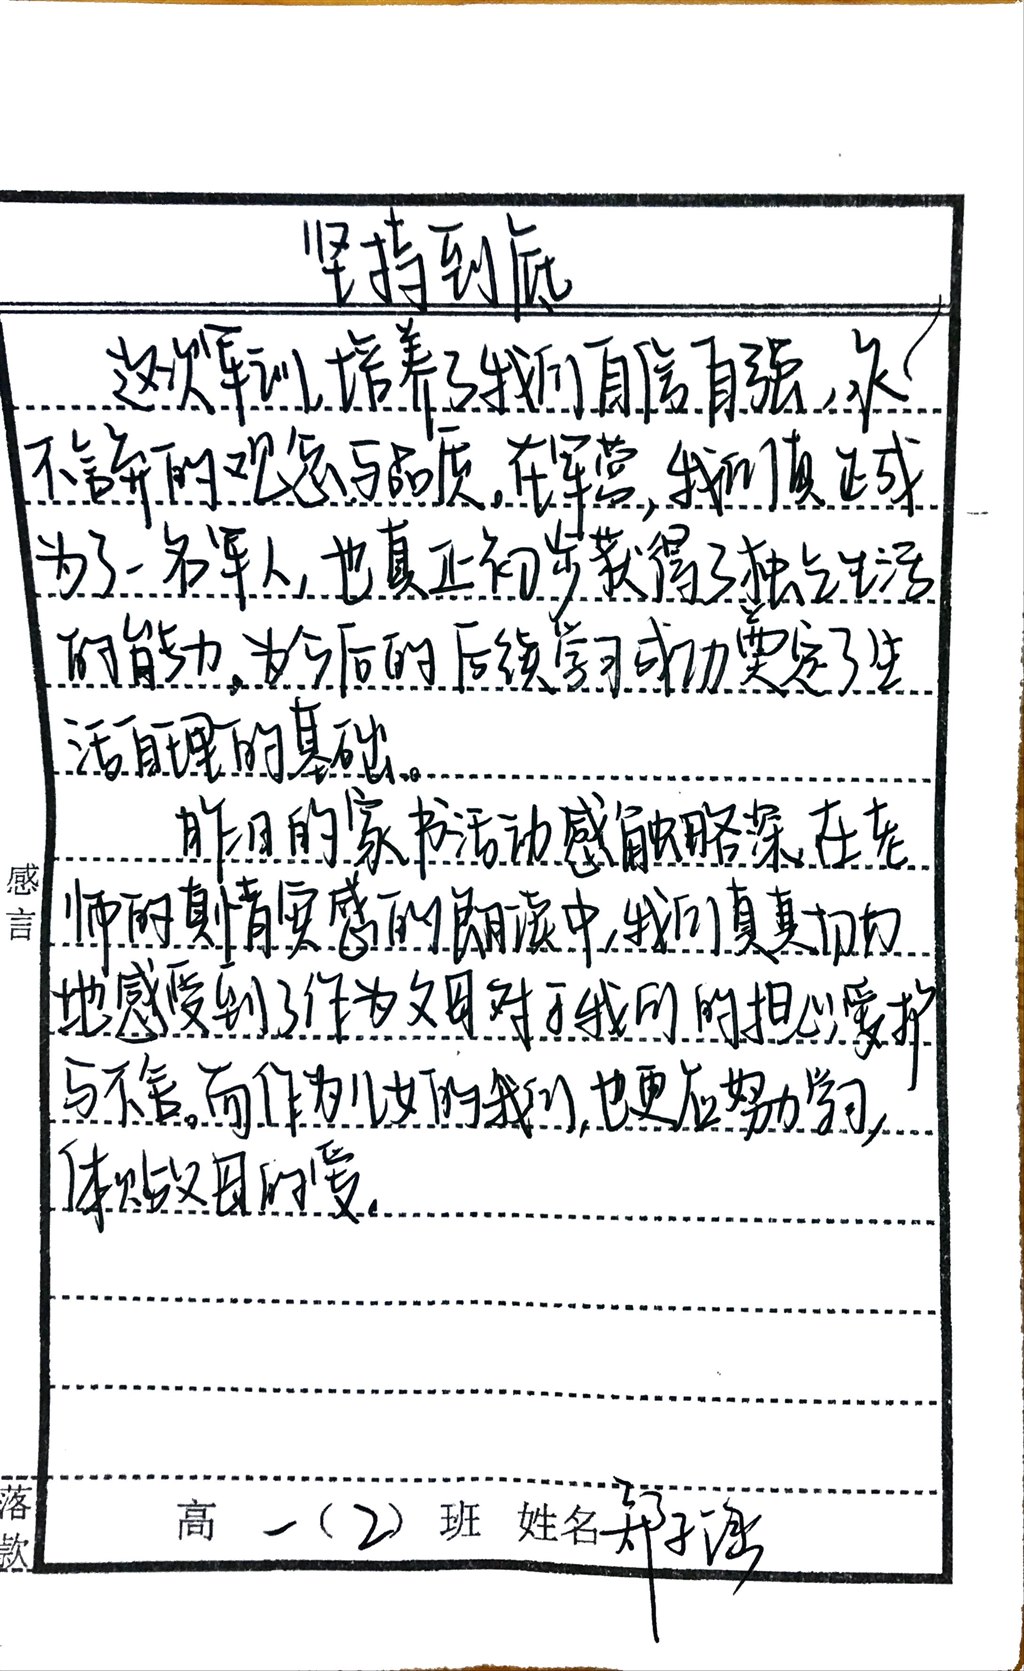 坚持到底
这次军训,培养了我们自信自强,永
不言弃的观念与品质。在军营,我们真正成
为了一名军人,也真正初步获得了独立生活
的能力。为今后的后续学习成功奠定了生
活自理的基础。
昨日的家书活动感触略深,在老
师的真情实感的朗读中,我们真真切切
地感受到了作为父母对于我们的担心爱护
与不舍。而作为儿女的我们,也更应努力学习,
体贴父母的爱。
感言
落款
高一(2)班 姓名郑子